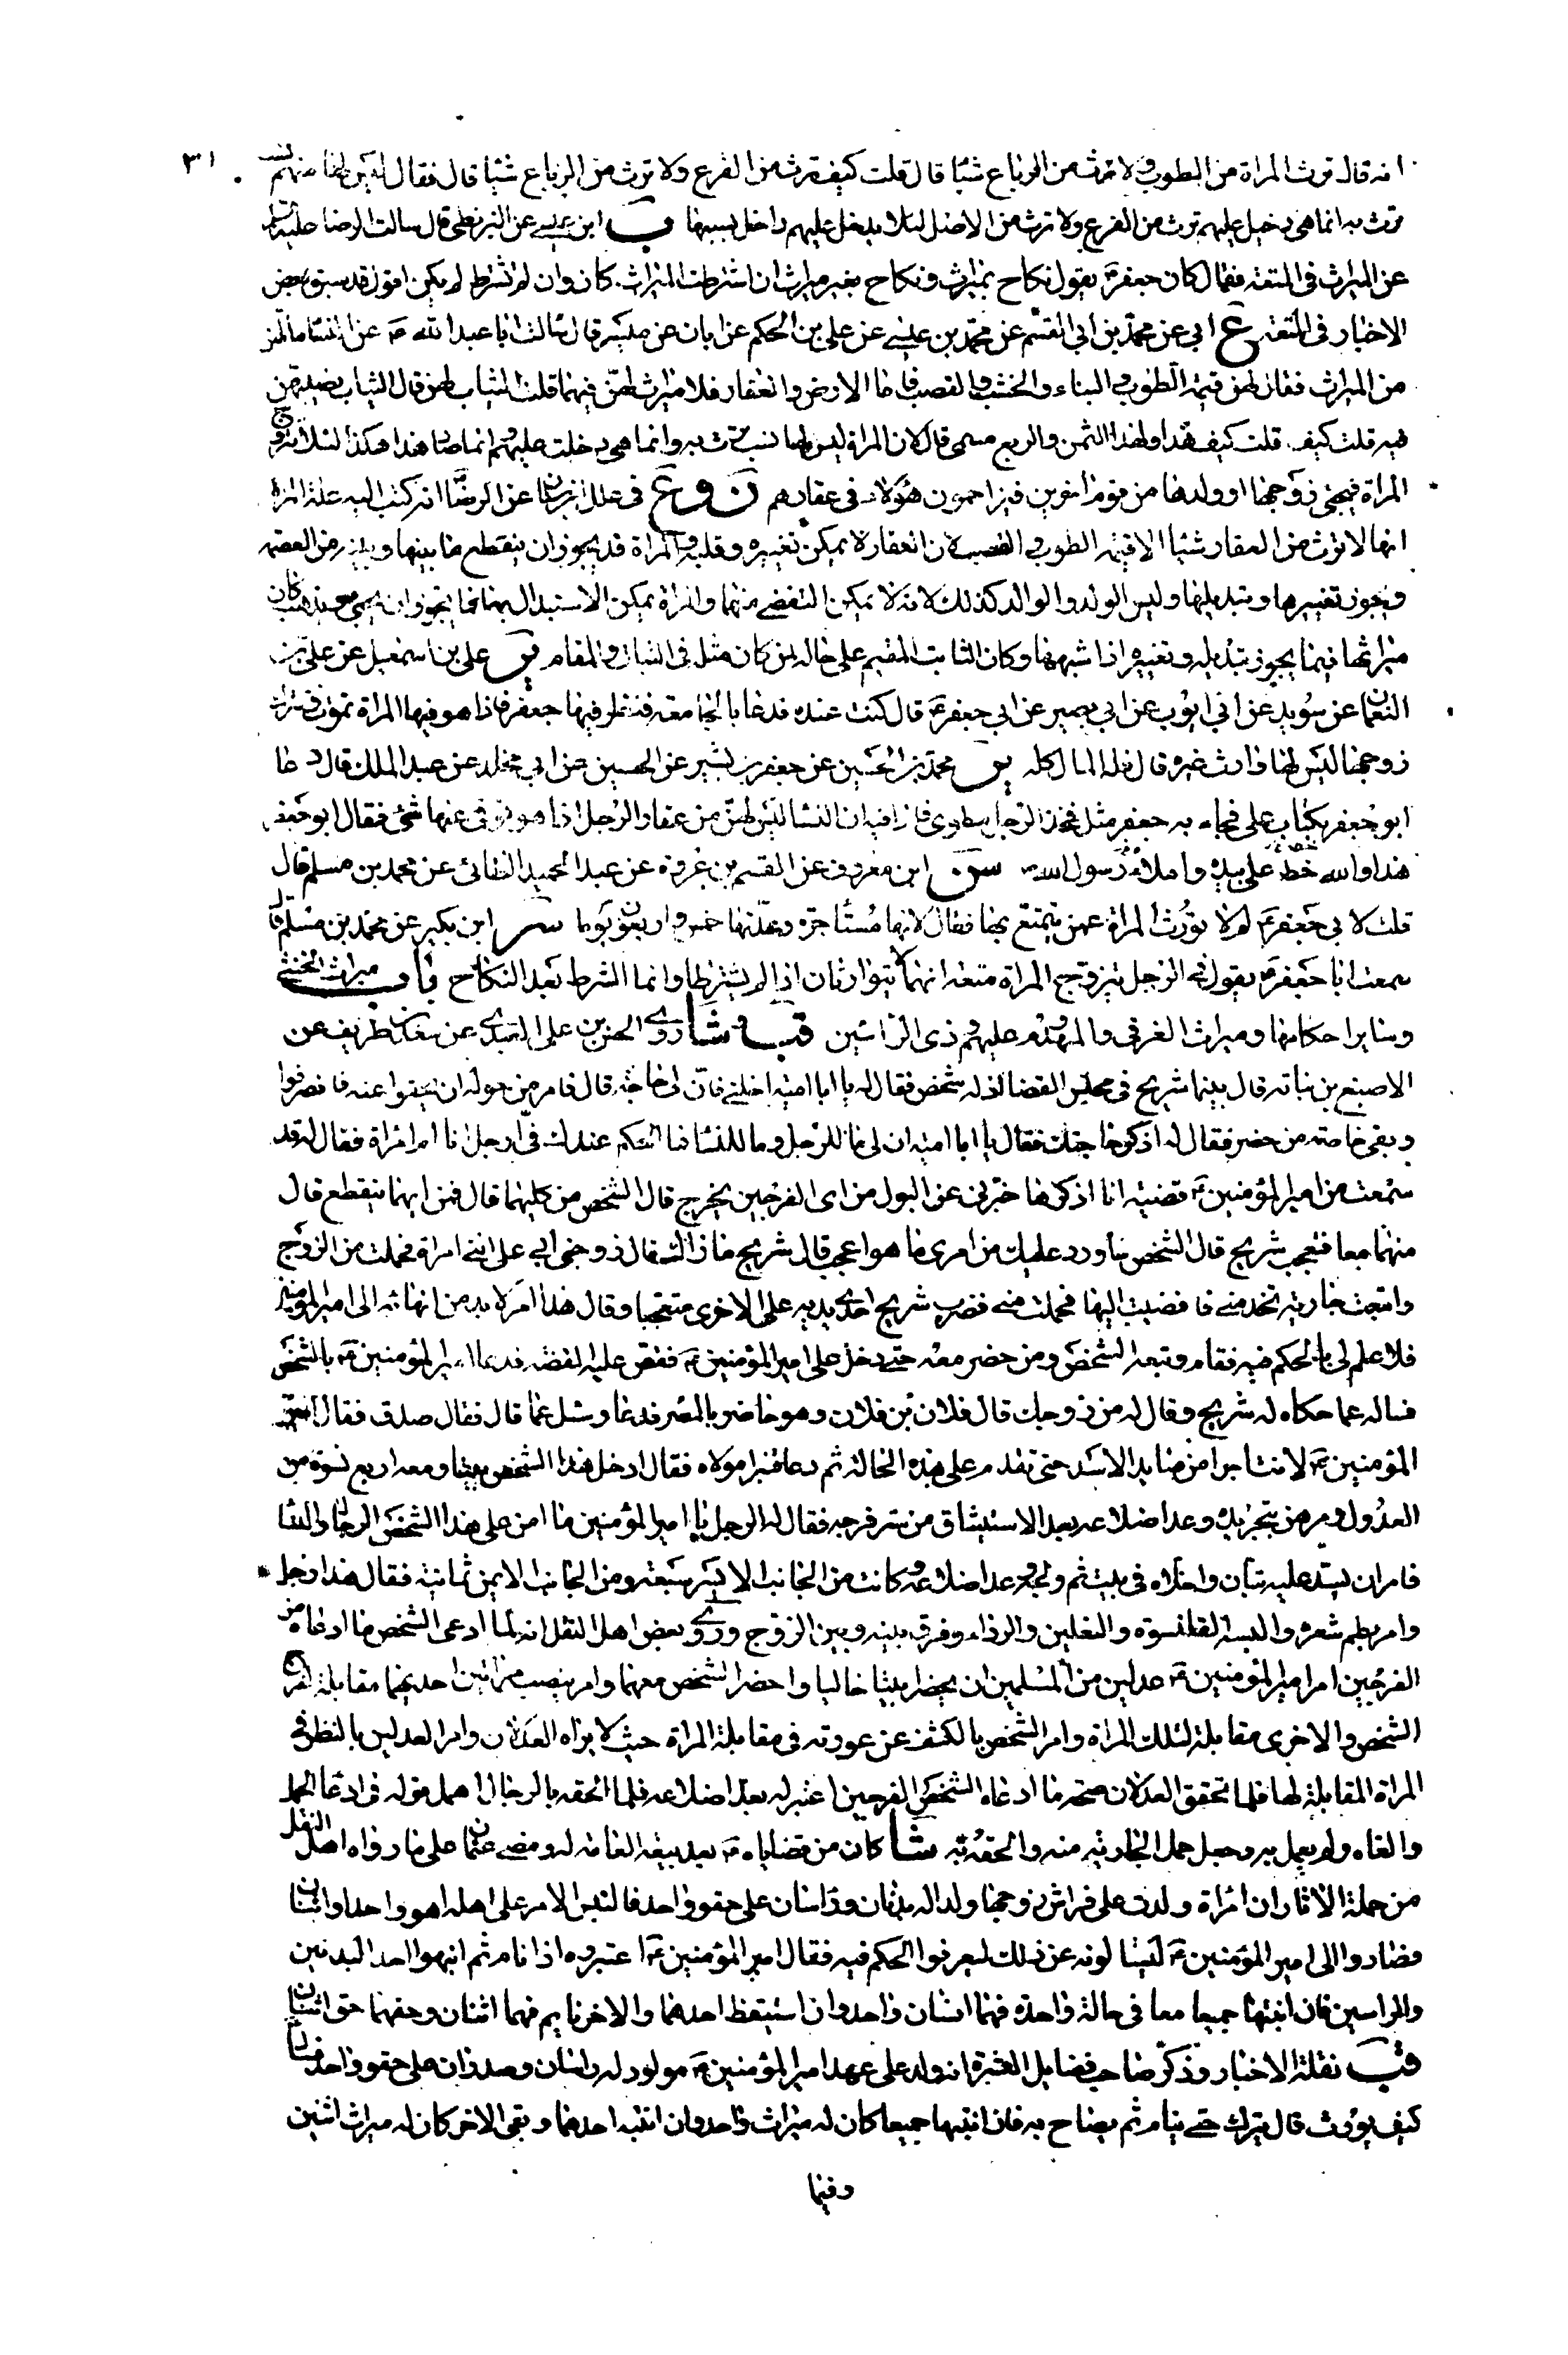 ٣١
انه قال ترث المراة من الطوب ولا ترث من الرباع شيئا قال قلت كيف ترث من الفرع ولا ترث من الرباع شيئا قال فقال ليس لها منهم نسب
ترث به انما هى دخيل عليهم ترث من الفرع ولا ترث من الاصل لئلا يدخل عليهم داخل بسببها ب ابن عيسى عن البزنطى قال سالت الرضا عليه السلم
عن الميراث فى المتعة فقال كان جعفر ع يقول نكاح بميراث ونكاح بغير ميراث ان اشترطت الميراث كان وان لم تشترط لم يكن اقول قد سبق بعض
الاخبار فى المتعة ع ابى عن محمد بن ابى القسم عن محمد بن عيسى عن على بن الحكم عن ابان عن ميسر قال سالت ابا عبد الله ع عن النسا ما لهن
من الميراث فقال لهن قيمة الطوب والبناء والخشب والقصب فاما الارض والعقار فلا ميراث لهن فيهما قلت الثياب لهن قال الثياب نصيبهن
فيه قلت كيف قلت كيف هذا ولهذا الثمن والربع مسمى قال لان المراة ليس لها نسب ترث به وانما هى دخلت عليهم انما صار هذا هكذا لئلا تتزوج
المراة فيجئ زوجها او ولدها من قوم اخرين فيزاحمون هؤلاء فى عقارهم ن وع فى علل ابن سنان عن الرضا انه كتب اليه علة المراة
انها لا ترث من العقار شيئا الا قيمة الطوب و القصب لان العقار لا يمكن تغييره وقلبه والمراة قد يجوز ان ينقطع ما بينها وبينه من العصمة
ويجوز تغييرها وتبديلها وليس الولد والوالد كذلك لانه لا يمكن التفصى منهما والمراة يمكن الاستبدال بها فما يجوز ان يجئ ويذهب كان
ميراثها فيما يجوز تبديله وتغييره اذا شبهها وكان الثابت المقيم على حاله لمن كان مثله فى الثبات والمقام ير على بن اسمعيل عن على بن
النعمان عن سويد عن ابى ايوب عن ابى بصير عن ابى جعفر ع قال كنت عنده فدعا بالجامعة فنظر فيها جعفر فاذا هو فيها المراة تموت وتترك
زوجها ليس لها وارث غيره قال فله المال كله ير محمد بن الحسين عن جعفر بن بشير عن الحسين عن ابى مخلد عن عبد الملك قال دعا
ابو جعفر بكتاب على فجاء به جعفر مثل فخذ الرجل مطوى فاذا فيه ان النسا ليس لهن من عقار الرجل اذا هو توفى عنها شئ فقال ابو جعفر
هذا والله خط على بيده واملاء رسول الله ص سن ابن معروف عن القسم بن عروة عن عبد الحميد الطائى عن محمد بن مسلم قال
قلت لابى جعفر ع لم لا تورث المراة عمن يتمتع بها فقال لانها مستاجرة وعدتها خمس واربعون يوما سر ابن بكير عن محمد بن مسلم قال
سمعت ابا جعفر ع يقول فى الرجل يتزوج المراة متعة انهما يتوارثان اذا لم يشترطا وانما الشرط بعد النكاح باب ميراث الخنثى
وساير احكامها وميراث الغرقى والمهدوم عليهم وذى الراسين قب وشا روى الحسن بن على العبدى عن سعد بن طريف عن
الاصبغ بن نباته قال بينما شريح فى مجلس القضا اذ له شخص فقال له يا ابا امية اخلنى فان لى حاجة قال فامر من حوله ان يخفوا عنه فانصرفوا
وبقى خاصته من حضر فقال له اذكر حاجتك فقال يا ابا امية ان لى ما للرجل وما للنسا فما الحكم عندك فى ارجل انا ام امراة فقال له قد
سمعت من امير المؤمنين ع قضية انا اذكرها خبرنى عن البول من اى الفرجين يخرج قال الشخص من كليهما قال فمن ايهما ينقطع قال
منهما معا فتعجب شريح قال الشخص ساورد عليك من امرى ما هو اعجب قال شريح ما ذاك قال زوجنى ابى على اننى امراة فحملت من الزوج
وابتعت جارية تخدمنى فافضيت اليها فحملت منى فضرب شريح احدى يديه على الاخرى متعجبا وقال هذا امر لا بد من انهائه الى امير المؤمنين
فلا علم لى بالحكم فيه فقام وتبعه الشخص ومن حضر معه حتى دخل على امير المؤمنين ع فقص عليه القصة فدعا امير المؤمنين ع بالشخص
فساله عما حكاه له شريح وقال له من زوجك قال فلان بن فلان وهو حاضر بالمصر فدعا وسئل عما قال فقال صدق فقال امير
المؤمنين ع لانت اجرا من صايد الاسد حتى تقدم على هذه الحالة ثم دعا قنبرا مولاه فقال ادخل هذا الشخص بيتا ومعه اربع نسوة من
العدول ومرهن بتجريده وعد اضلاعه بعد الاستيثاق من ستر فرجه فقال له الرجل يا امير المؤمنين ما امن على هذا الشخص الرجال والنسا
فامر ان يشد عليه تبان واخلاه فى بيت ثم ولجه وعد اضلاعه وكانت من الجانب الايسر سبعة ومن الجانب الايمن ثمانية فقال هذا رجل
وامر بطم شعره والبسه القلنسوة والنعلين والرداء وفرق بينه وبين الزوج وروى بعض اهل النقل انه لما ادعى الشخص ما ادعاه من
الفرجين امر امير المؤمنين ع عدلين من المسلمين ان يحضرا بيتا خاليا واحضر الشخص معهما وامر بنصب مراتين احديهما مقابلة لفرج
الشخص والاخرى مقابلة لتلك المراة وامر الشخص بالكشف عن عورته فى مقابلة المراة حيث لا يراه العدلان وامر العدلين بالنظر فى
المراة المقابلة لها فلما تحقق العدلان صحة ما ادعاه الشخص من الفرجين اعتبر له بعد اضلاعه فلما الحقه بالرجال اهمل قوله فى ادعا الحمل
والقاه ولم يعمل به وجعل حمل الجارية منه والحقه به شا كان من قضاياه ع بعد بيعة العامة له ومضى عثمان على ما رواه اهل النقل
من حملة الاثار ان امراة ولدت على فراش زوجها ولدا له بدنان وراسان على حقو واحد فالتبس الامر على اهله اهو واحدا واثنان
فصاروا الى امير المؤمنين ع ليسالونه عن ذلك ليعرفوا الحكم فيه فقال امير المؤمنين ع اعتبروه اذا نام ثم انبهوا احد البدنين
والراسين فان انتبها جميعا معا فى حالة واحدة فهما انسان واحد وان استيقظ احدهما والاخر نايم فهما اثنان وحقهما حق اثنان
قب نقلة الاخبار وذكر صاحب فضايل العشرة انه ولد على عهد امير المؤمنين ع مولود له راسان وصدران على حقو واحد فسال
كيف يورث قال يترك حتى ينام ثم يصاح به فان انتبها جميعا كان له ميراث واحد وان انتبه احدهما وبقى الاخر كان له ميراث اثنين
وفيما